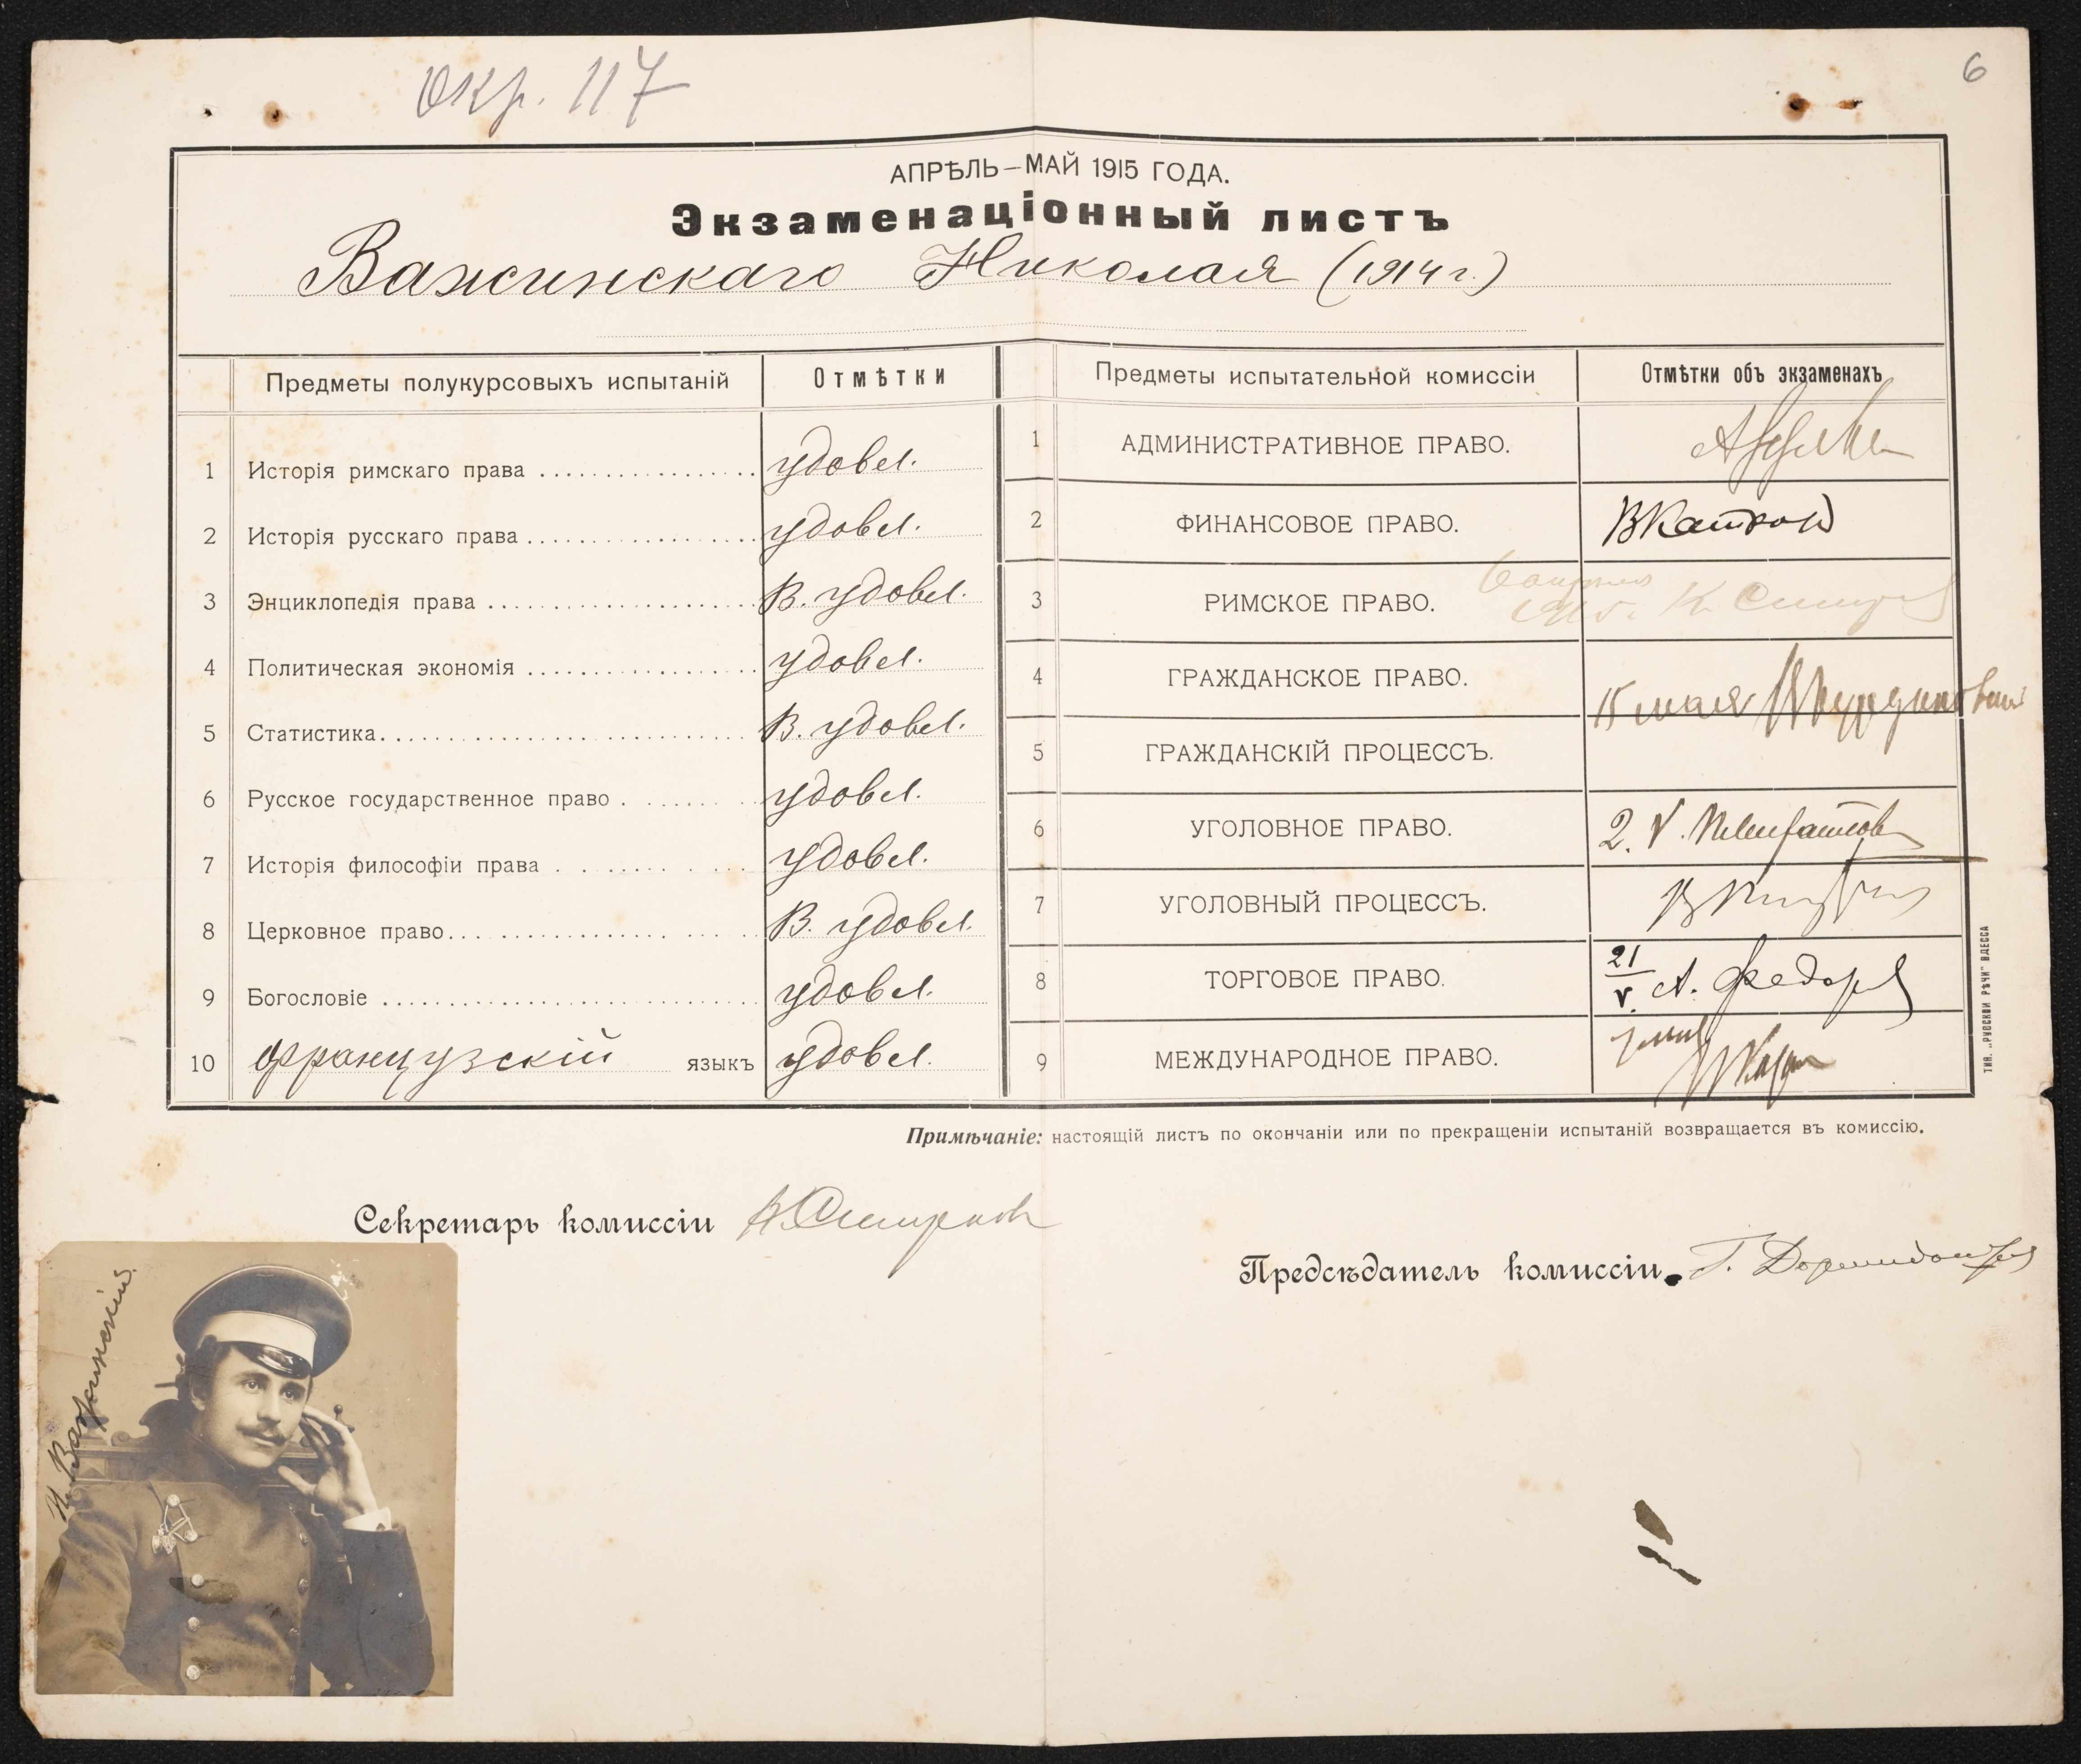 Окр. 117
6
АПРѢЛЬ—МАЙ 1915 ГОДА.
Экзаменаціонный листъ
Важинскаго Николая (1914 г.)
Предметы полукурсовыхъ испытаній
Отмѣтки
1 Исторія римскаго права удовл.
2 Исторія русскаго права удовл.
3 Энциклопедія права В. удовл.
4 Политическая экономія удовл.
5 Статистика В. удовл.
6 Русское государственное право удовл.
7 Исторія философіи права удовл.
8 Церковное право В. удовл.
9 Богословіе удовл.
10 французскій языкъ удовл.
Предметы испытательной комиссіи
Отмѣтки объ экзаменахъ
1 АДМИНИСТРАТИВНОЕ ПРАВО.
2 ФИНАНСОВОЕ ПРАВО. В Катков
3 РИМСКОЕ ПРАВО. 1915.
4 ГРАЖДАНСКОЕ ПРАВО. 15 мая
5 ГРАЖДАНСКІЙ ПРОЦЕССЪ.
6 УГОЛОВНОЕ ПРАВО. 2. V.
7 УГОЛОВНЫЙ ПРОЦЕССЪ.
8 ТОРГОВОЕ ПРАВО. 21/V. А. Федоров
9 МЕЖДУНАРОДНОЕ ПРАВО.
Примѣчаніе: настоящій листъ по окончаніи или по прекращеніи испытаній возвращается въ комиссію.
ТИП. „РУССКОЙ РѢЧИ" ОДЕССА
Секретарь комиссіи Смирнов
Предсѣдатель комиссіи Г.
Н. Важинскій.